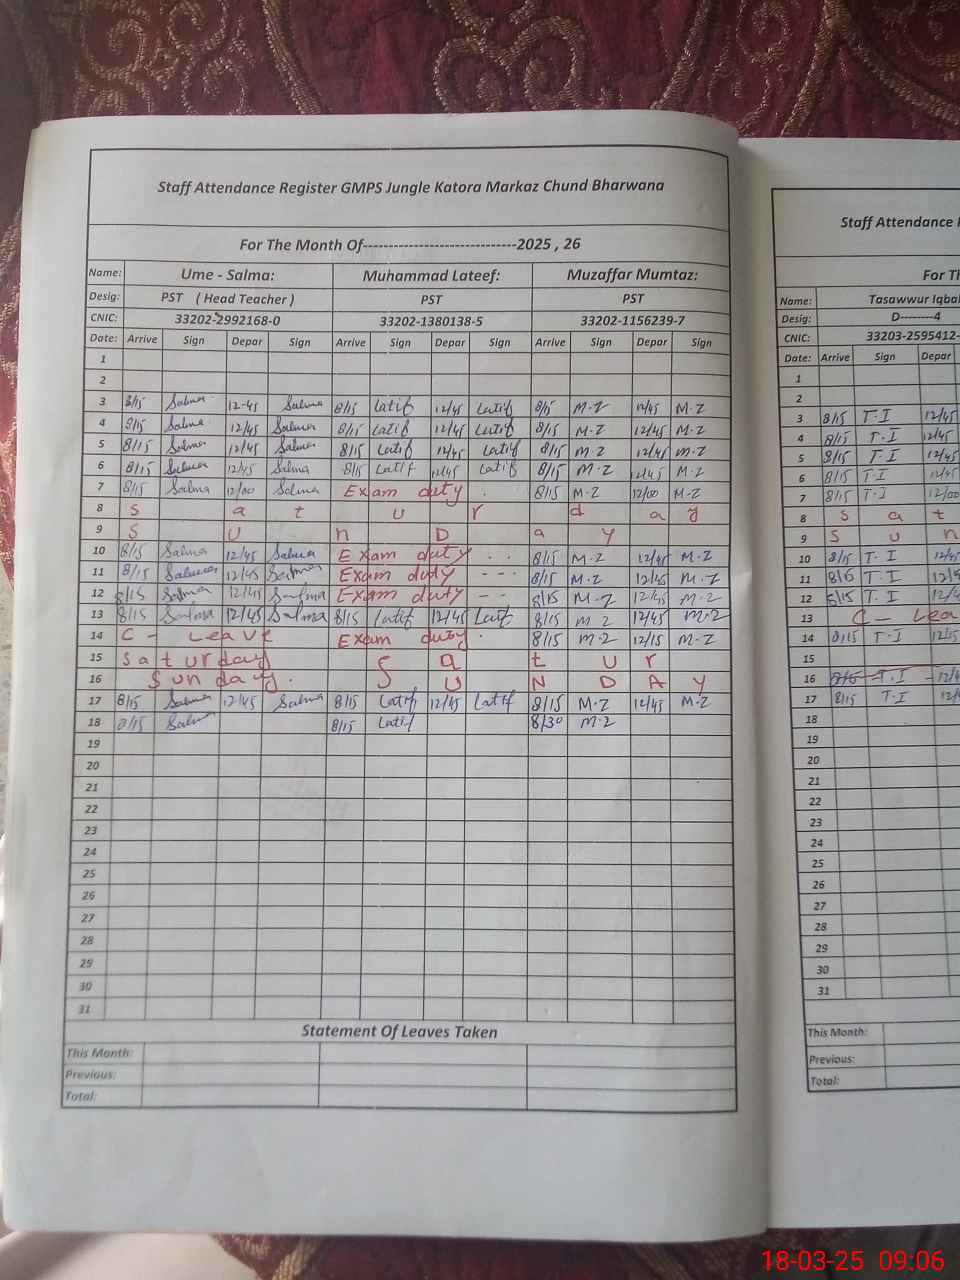 Staff Attendance Register GMPS Jungle Katora Markaz Chund Bharwana
For The Month Of------------------------------2025 , 26
Name: Ume - Salma: Muhammad Lateef: Muzaffar Mumtaz:
Desig: PST ( Head Teacher ) PST PST
CNIC: 33202-2992168-0 33202-1380138-5 33202-1156239-7
Date: Arrive Sign Depar Sign Arrive Sign Depar Sign Arrive Sign Depar Sign
1
2
3 8/15 Salma 12-45 Salma 8/15 Latif 12/45 Latif 8/15 M-Z 12/45 M-Z
4 8/15 Salma 12/45 Salma 8/15 Latif 12/45 Latif 8/15 M-Z 12/45 M-Z
5 8/15 Salma 12/45 Salma 8/15 Latif 12/45 Latif 8/15 M-Z 12/45 M-Z
6 8/15 Salma 12/45 Salma 8/15 Latif 12/45 Latif 8/15 M-Z 12/45 M-Z
7 8/15 Salma 12/00 Salma Exam duty . 8/15 M-Z 12/00 M-Z
8 S a t u r d a y
9 S U n D a y
10 8/15 Salma 12/45 Salma Exam duty - - 8/15 M-Z 12/45 M-Z
11 8/15 Salma 12/45 Salma Exam duty - - - 8/15 M-Z 12/45 M-Z
12 8/15 Salma 12/45 Salma Exam duty - - 8/15 M-Z 12/45 M-Z
13 8/15 Salma 12/45 Salma 8/15 Latif 12/45 Latif 8/15 M-Z 12/45 M-Z
14 C - Leave Exam duty . 8/15 M-Z 12/15 M-Z
15 Saturday S a t u r
16 Sunday . S U N D A Y
17 8/15 Salma 12/45 Salma 8/15 Latif 12/45 Latif 8/15 M-Z 12/45 M-Z
18 8/15 Salma 8/15 Latif 8/30 M-Z
19
20
21
22
23
24
25
26
27
28
29
30
31
Statement Of Leaves Taken
This Month:
Previous:
Total:
Staff Attendance
For
Name: Tasawwur Iqbal
Desig: D--------4
CNIC: 33203-2595412-
Date: Arrive Sign Depar
1
2
3 8/15 T-I 12/45
4 8/15 T-I 12/45
5 8/15 T-I 12/45
6 8/15 T-I 12/45
7 8/15 T-I 12/00
8 S a t
9 S u n
10 8/15 T-I 12/45
11 8/15 T-I
12 8/15 T-I
13 C - Lea
14 8/15 T-I
15
16 8/15 T-I
17 8/15 T-I
18
19
20
21
22
23
24
25
26
27
28
29
30
31
This Month:
Previous:
Total:
18-03-25 09:06